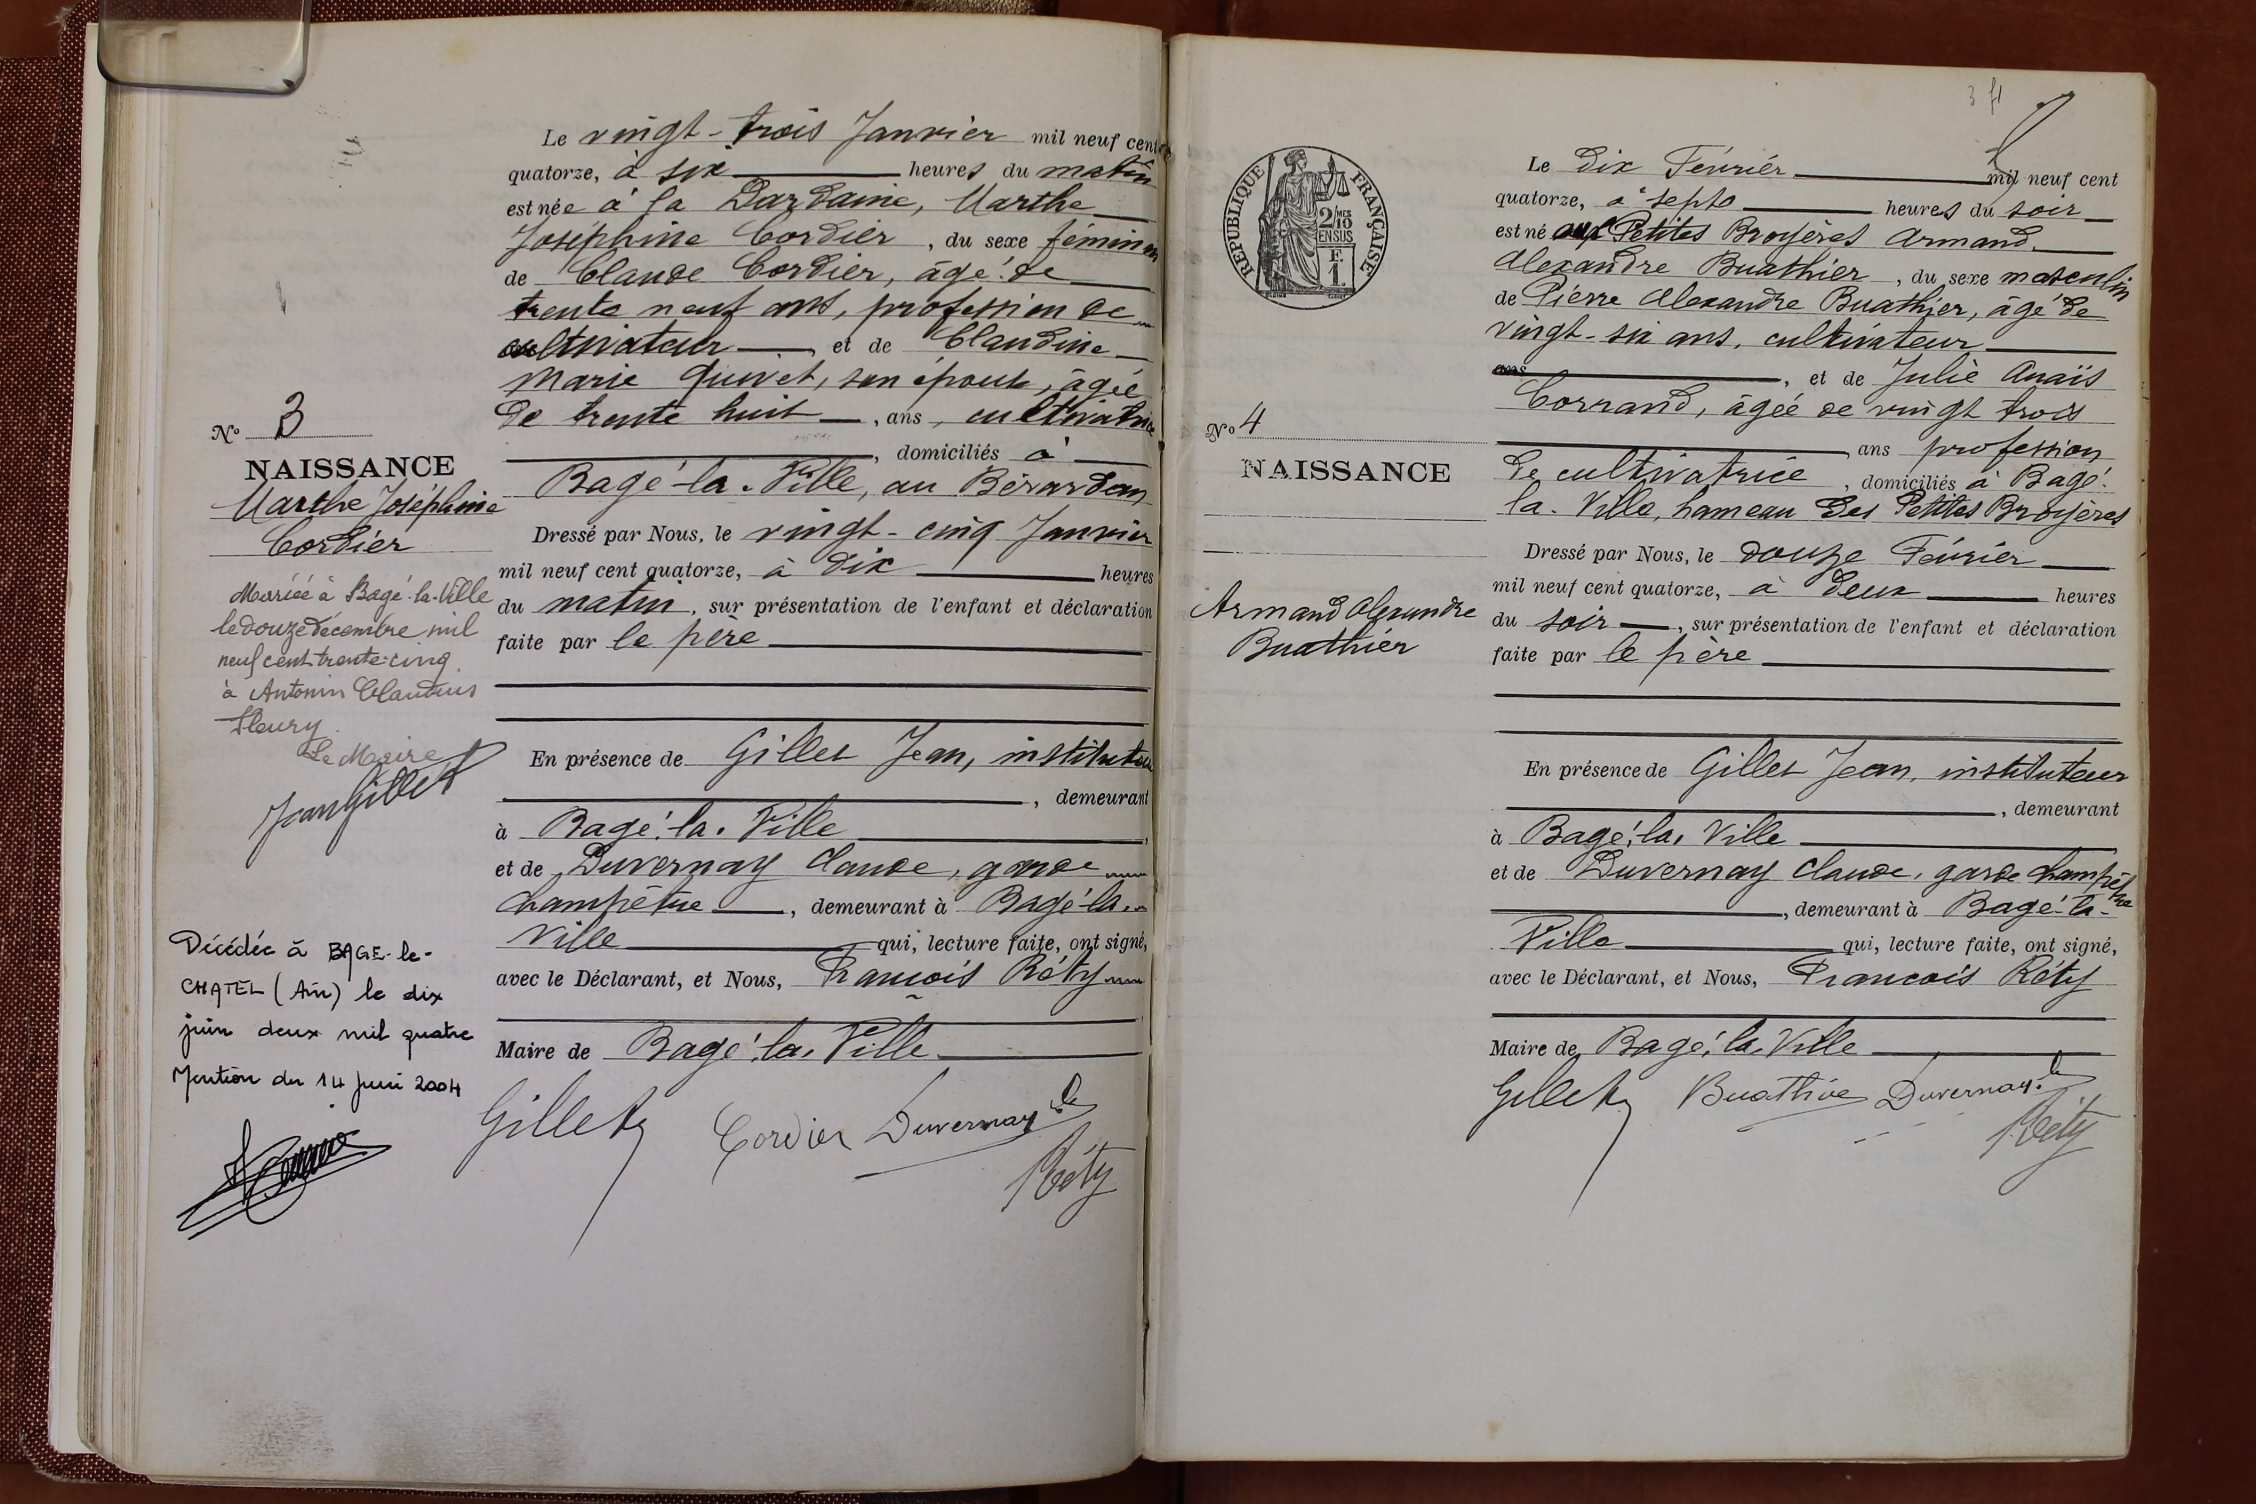 Le vingt-trois Janvier mil neuf cent
quatorze, à six heures du matin
est née à la Dardaine, Marthe
Joséphine Cordier, du sexe féminin
de Claude Cordier, âgé de
trente neuf ans, profession de
cultivateur et de Claudine
Marie Quivet, son épouse, âgée
de trente huit, ans, cultivatrice
, domiciliés à
Bagé-la-Ville, au Bérardan
Dressé par Nous, le vingt-cinq Janvier
mil neuf cent quatorze, à dix heures
du matin, sur présentation de l'enfant et déclaration
faite par le père
En présence de Gillet Jean, instituteur
, demeurant
à Bagé-la-Ville
et de Duvernay Claude, garde
champêtre, demeurant à Bagé-la-
Ville qui, lecture faite, ont signé,
avec le Déclarant, et Nous, François Réty
Maire de Bagé-la-Ville
Gillet Cordier Duvernay
Réty
No 3
NAISSANCE
Marthe Joséphine
Cordier
Mariée à Bagé-la-Ville
le douze décembre mil
neuf cent trente-cinq
à Antonin Claudius
Fleury
Le Maire
Jean Gillet
Décédée à BAGE-le-
CHATEL (Ain) le dix
juin deux mil quatre
Mention du 14 juin 2004
3 f1
RÉPUBLIQUE FRANÇAISE
2/10 MES
EN SUS
F.
1
Le dix Février mil neuf cent
quatorze, à sept heures du soir
est né aux Petites Broyères Armand
Alexandre Buathier, du sexe masculin
de Pierre Alexandre Buathier, âgé de
vingt-six ans, cultivateur
ans, et de Julie Anaïs
Corrand, âgée de vingt trois
ans profession
de cultivatrice, domiciliés à Bagé-
la-Ville, hameau des Petites Broyères
Dressé par Nous, le douze Février
mil neuf cent quatorze, à deux heures
du soir, sur présentation de l'enfant et déclaration
faite par le père
En présence de Gillet Jean, instituteur
, demeurant
à Bagé-la-Ville
et de Duvernay Claude, garde champêtre
, demeurant à Bagé-la-
Ville qui, lecture faite, ont signé,
avec le Déclarant, et Nous, Francois Réty
Maire de Bagé-la-Ville
Gillet Buathier Duvernay
Réty
No 4
NAISSANCE
Armand Alexandre
Buathier